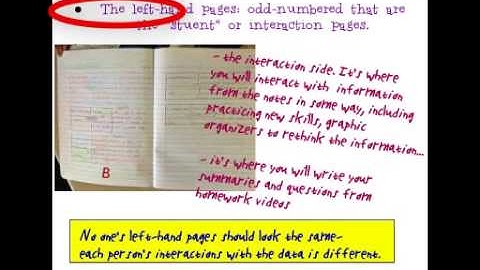 • The left-hand pages: odd-numbered that are
the "stuent" or interaction pages.
- the interaction side. It's where
you will interact with information
from the notes in some way, including
practicing new skills, graphic
organizers to rethink the information...
- it's where you will write your
summaries and questions from
homework videos
B
No one's left-hand pages should look the same-
each person's interactions with the data is different.